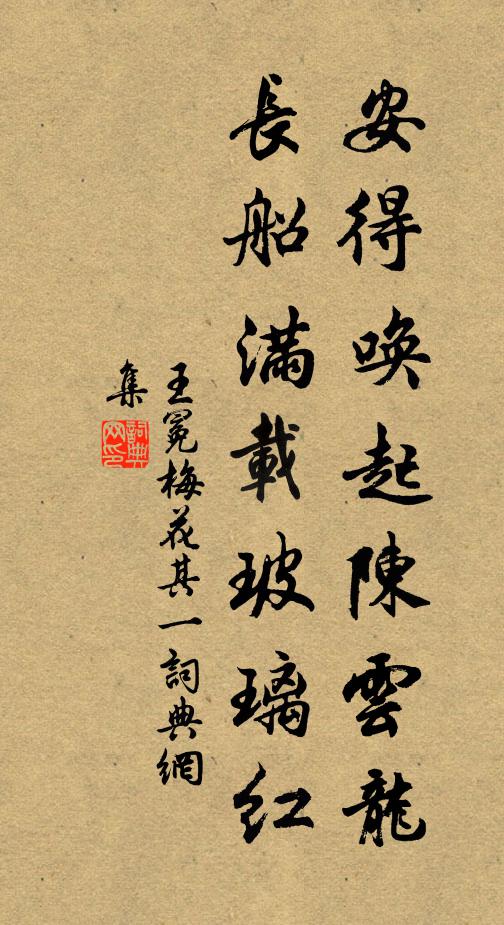 安得喚起陳雲龍
長船滿載玻璃紅
王冕梅花其一詞典網
集
詞典
网印